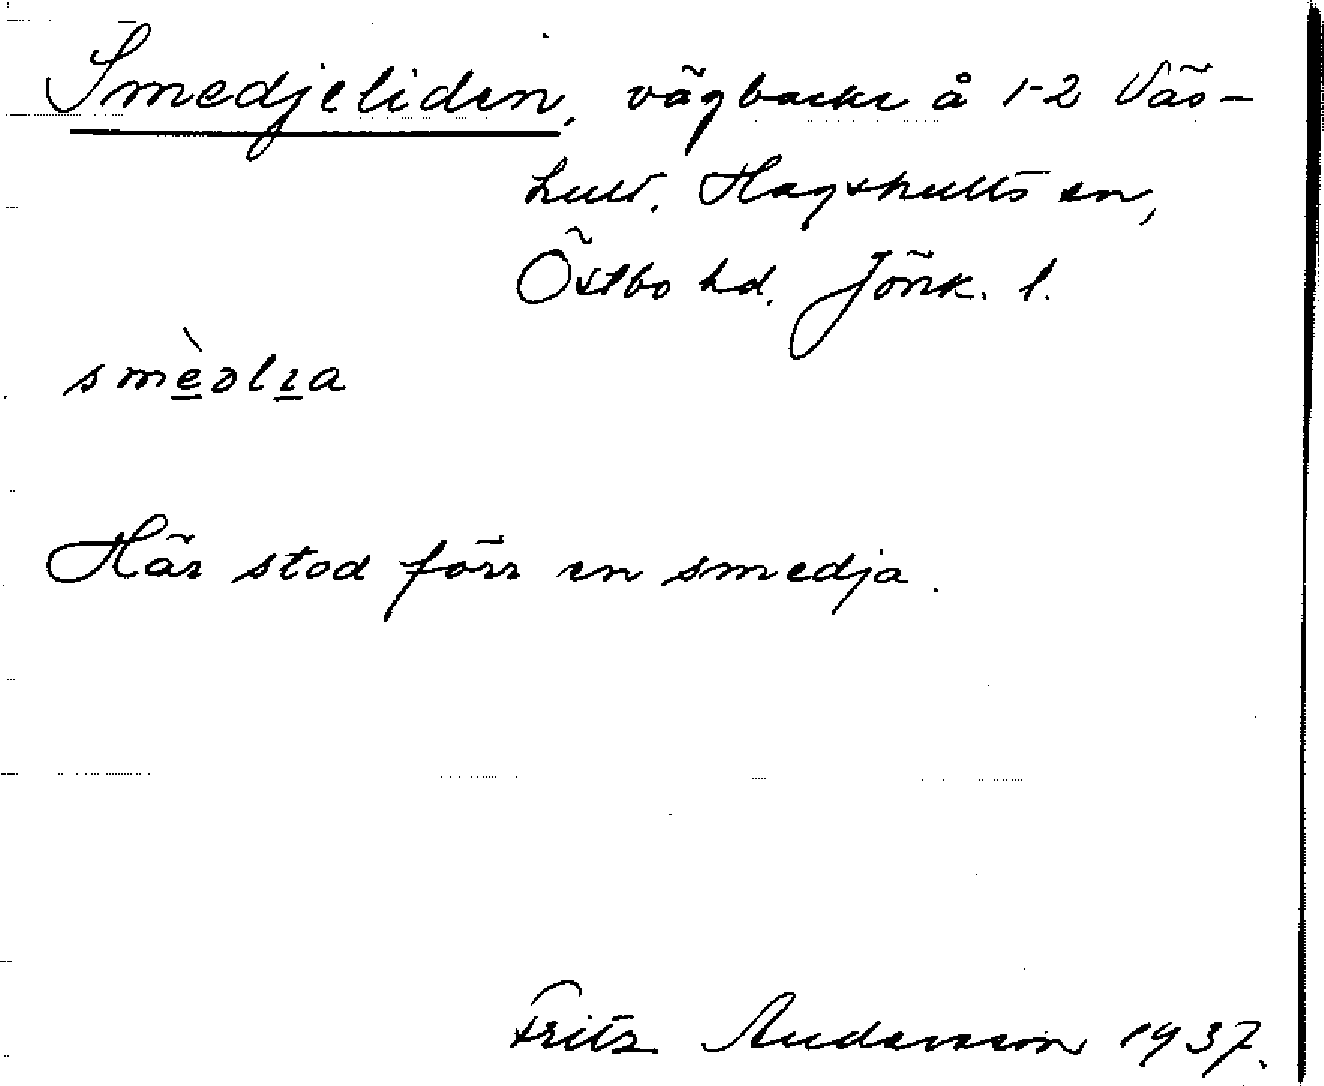 Smedjeliden, vägbacke å 1-2 Väs-
hult. Hagshults sn,
Östbo hd. Jönk. l.
smèdlɪa
Här stod förr en smedja.
Fritz Andersson 1937.